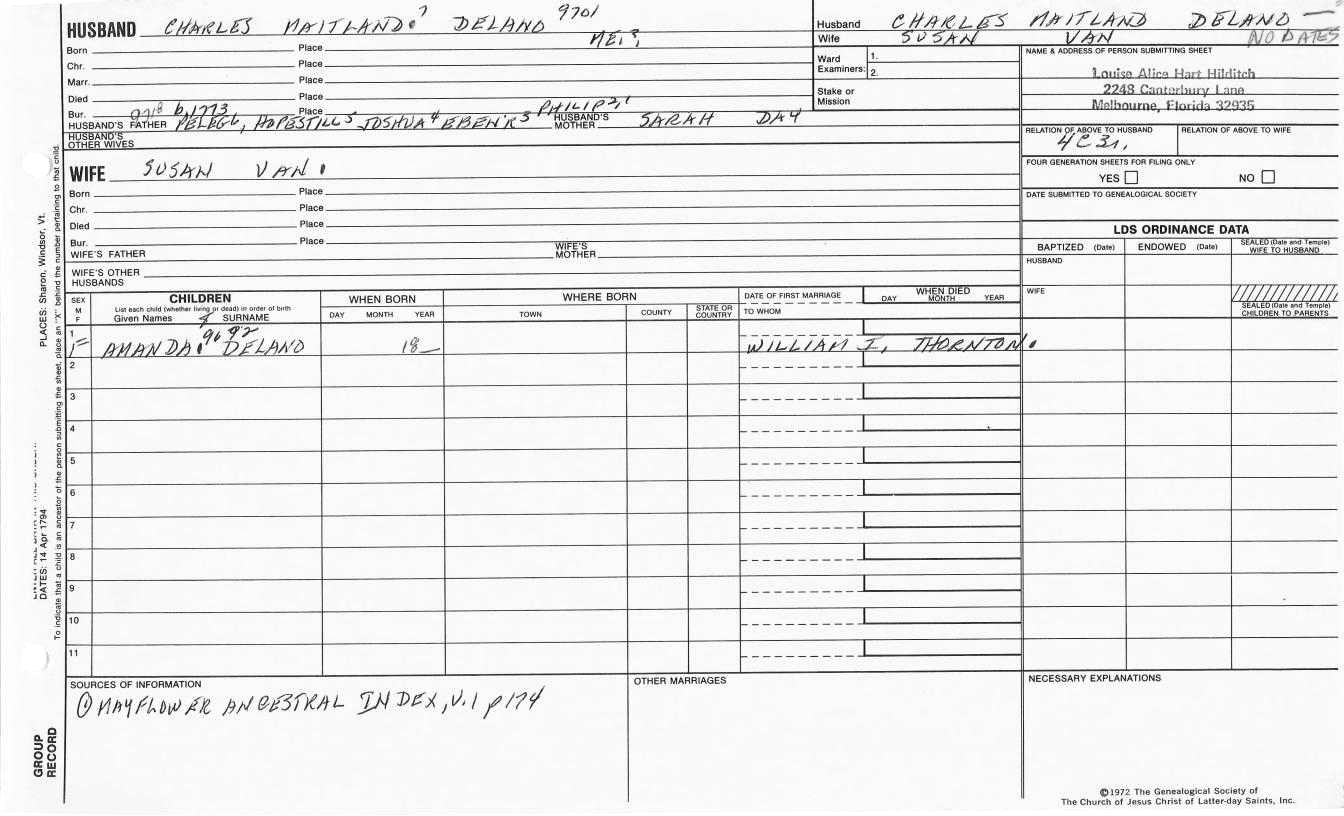 HUSBAND CHARLES MAITLAND 7 DELAND 9701
Husband CHARLES MAITLAND DELAND —
Wife SUSAN VAN NO DATES
Born Place
Chr. Place
Marr. Place
Died Place
Bur. b,1773 Place
HUSBAND'S FATHER PELEG6, HOPESTILL5 JOSHUA4 EBEN'R3 PHILIP2,1 HUSBAND'S MOTHER SARAH DAY
HUSBAND'S OTHER WIVES
Ward Examiners: 1.
2.
Stake or Mission
NAME & ADDRESS OF PERSON SUBMITTING SHEET
Louise Alice Hart Hilditch
2248 Canterbury Lane
Melbourne, Florida 32935
RELATION OF ABOVE TO HUSBAND RELATION OF ABOVE TO WIFE
4C3r,
FOUR GENERATION SHEETS FOR FILING ONLY
YES NO
DATE SUBMITTED TO GENEALOGICAL SOCIETY
WIFE SUSAN VAN
Born Place
Chr. Place
Died Place
Bur. Place
WIFE'S FATHER WIFE'S MOTHER
WIFE'S OTHER HUSBANDS
LDS ORDINANCE DATA
BAPTIZED (Date) ENDOWED (Date) SEALED (Date and Temple) WIFE TO HUSBAND
HUSBAND
WIFE
SEALED (Date and Temple) CHILDREN TO PARENTS
SEX M F
CHILDREN
List each child (whether living or dead) in order of birth
Given Names SURNAME
WHEN BORN
DAY MONTH YEAR
WHERE BORN
TOWN COUNTY STATE OR COUNTRY
DATE OF FIRST MARRIAGE
TO WHOM
WHEN DIED
DAY MONTH YEAR
1 AMANDA 8 9692 DELAND 18— WILLIAM I, THORNTON
2
3
4
5
6
7
8
9
10
11
SOURCES OF INFORMATION
① MAYFLOWER ANCESTRAL INDEX, V.1 p174
OTHER MARRIAGES
NECESSARY EXPLANATIONS
©1972 The Genealogical Society of
The Church of Jesus Christ of Latter-day Saints, Inc.
PLACES: Sharon, Windsor, Vt.
DATES: 14 Apr 1794
To indicate that a child is an ancestor of the person submitting the sheet, place an "X" behind the number pertaining to that child.
GROUP RECORD